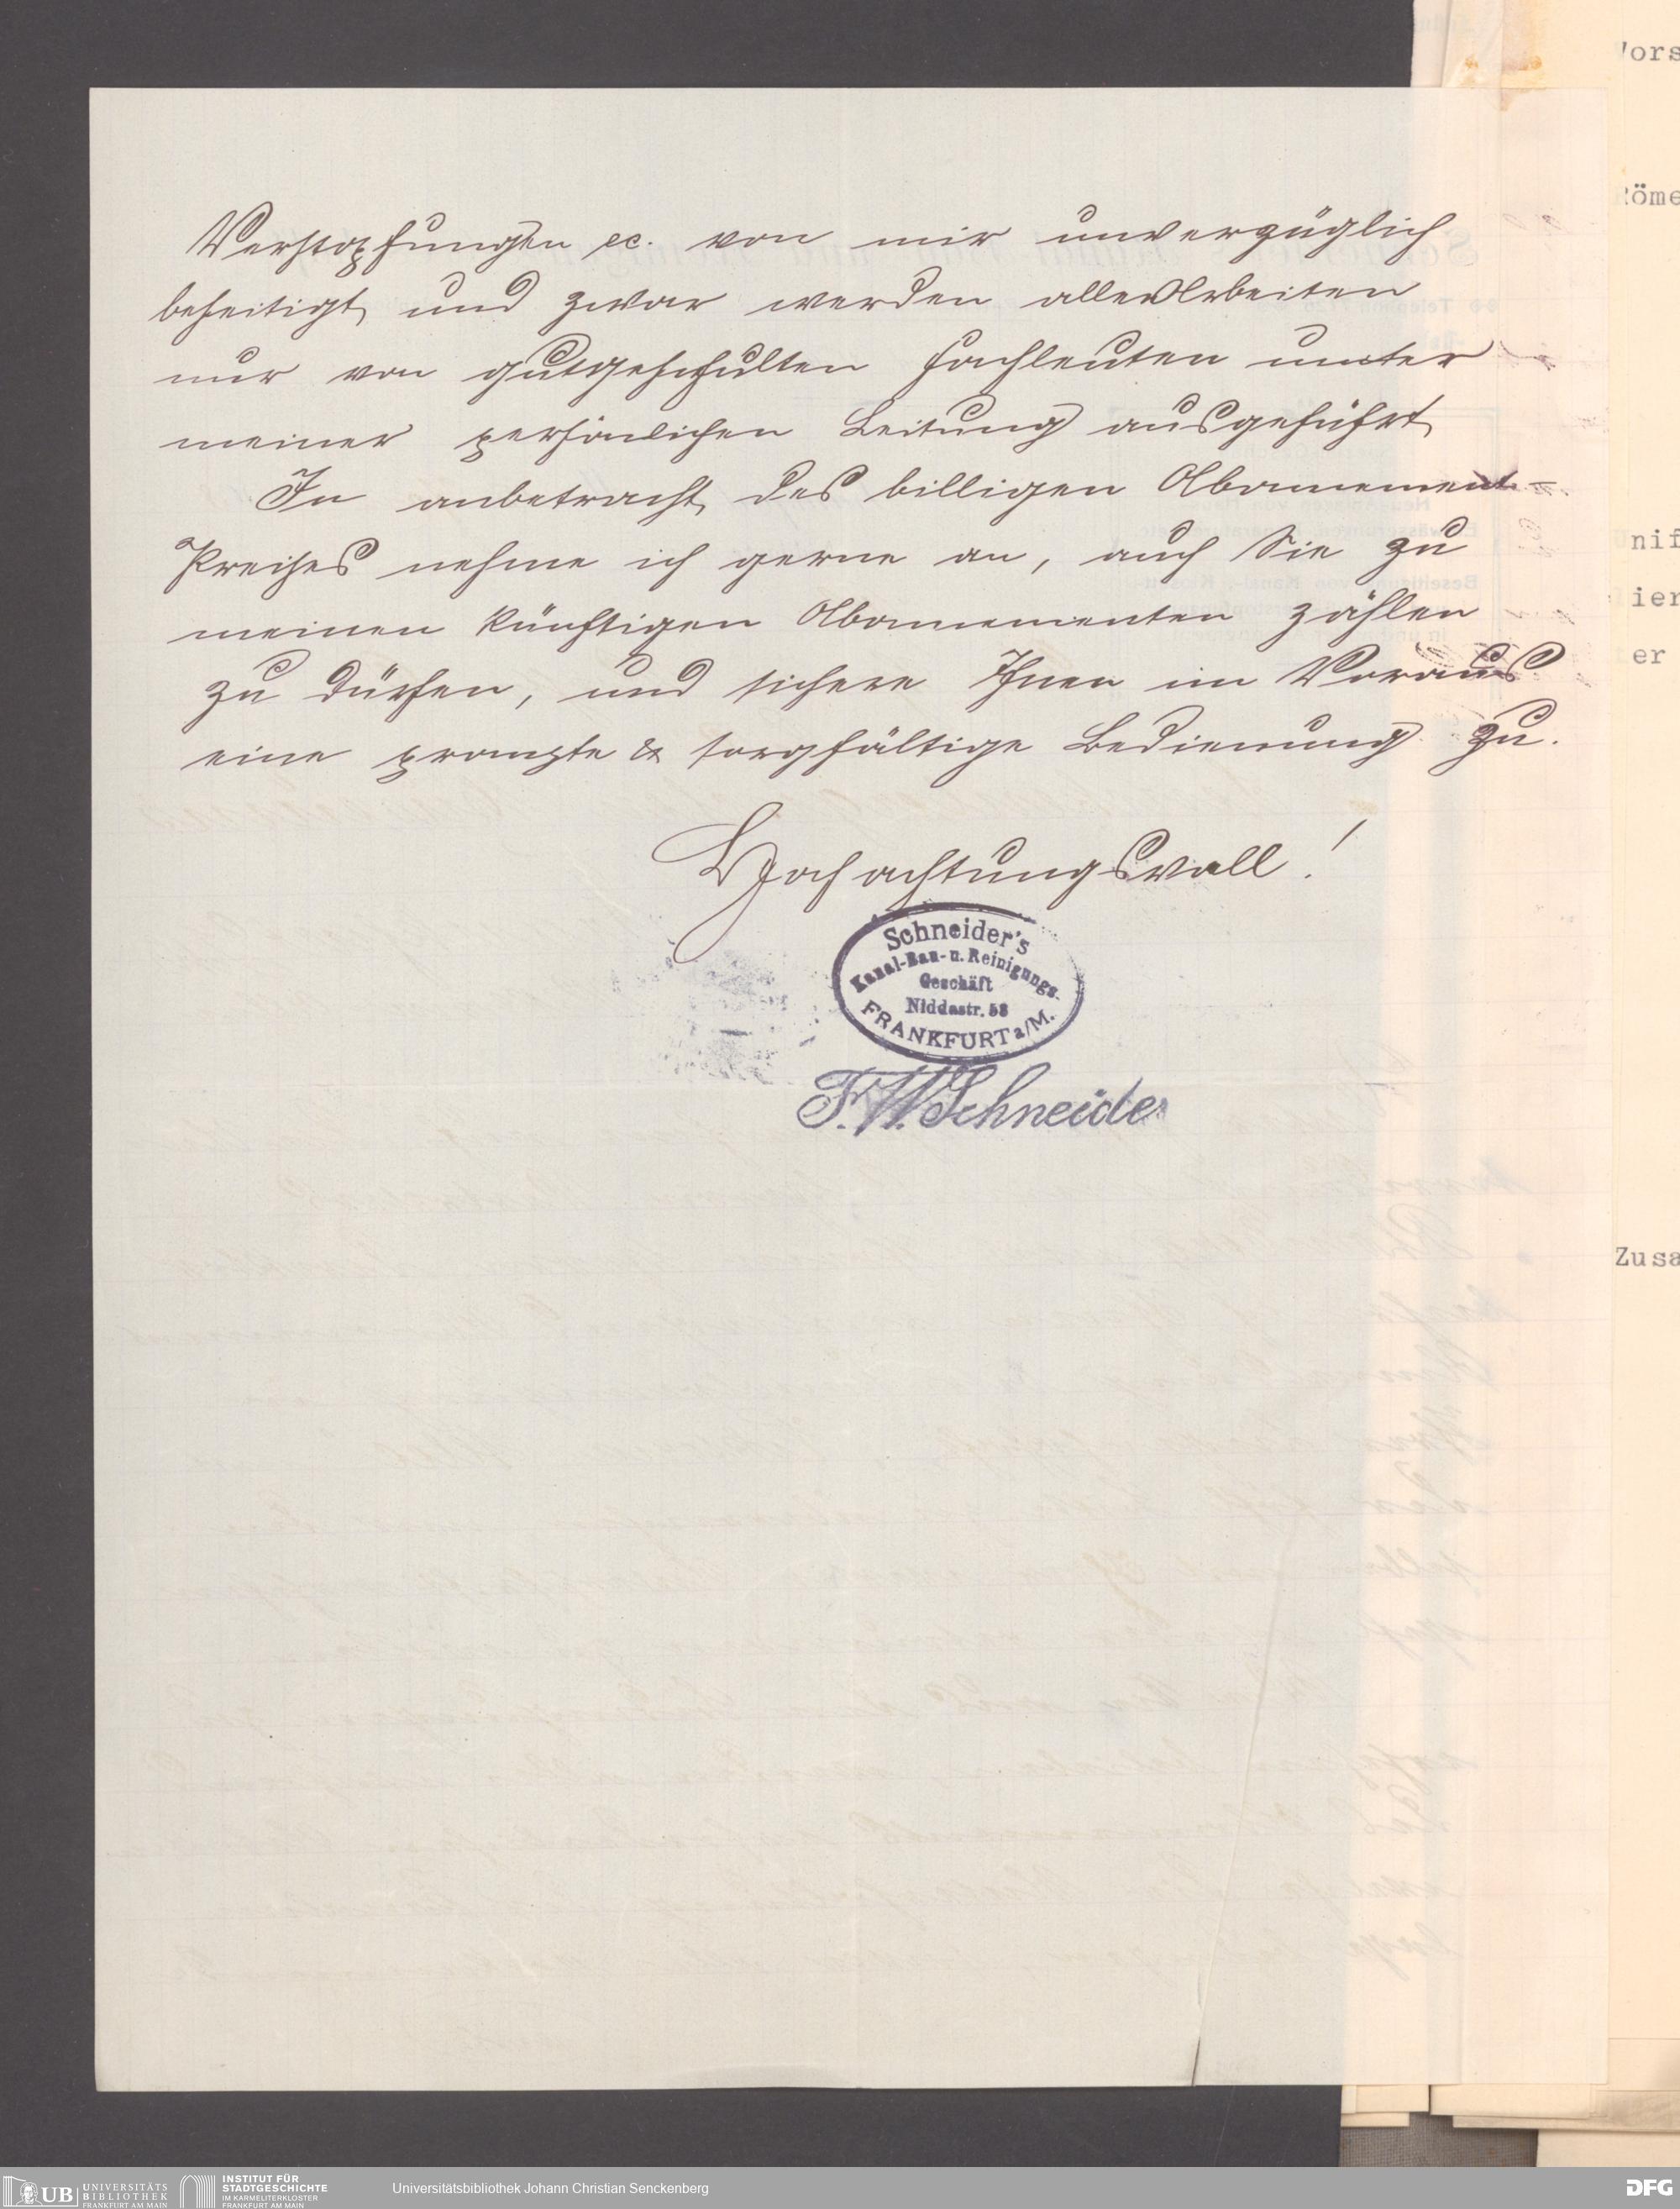 Verstopfungen ec. von mir unverzüglich
beseitigt, und zwar werden alle Arbeiten
nur von gutgeschulten Fachleuten unter
meiner persönlichen Leitung ausgeführt,
In anbetracht, des billigen Abonnement-
Preises nehme ich gerne an, auch Sie zu
meinen künftigen Abonnementen zählen
zu dürfen, und sichere Ihnen im Voraus
eine prompte & sorgfältige Bedienung zu.
Hochachtungsvoll!
Schneider's
Kanal-Bau- u. Reinigungs-
Geschäft
Niddastr. 58
FRANKFURT a/M.
F.W. Schneider
Vors
Röme
nif
ier
er
Zusa
UB UNIVERSITÄTS
BIBLIOTHEK
FRANKFURT AM MAIN
INSTITUT FÜR
STADTGESCHICHTE
IM KARMELITERKLOSTER
FRANKFURT AM MAIN
Universitätsbibliothek Johann Christian Senckenberg
DFG